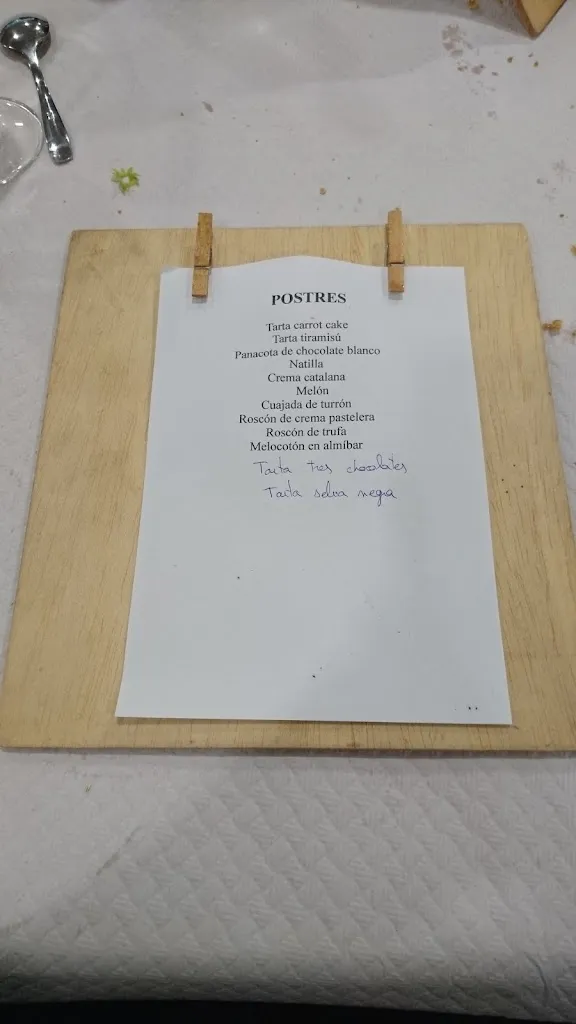 POSTRES
Tarta carrot cake
Tarta tiramisú
Panacota de chocolate blanco
Natilla
Crema catalana
Melón
Cuajada de turrón
Roscón de crema pastelera
Roscón de trufa
Melocotón en almíbar
Tarta tres chocolates
Tarta selva negra